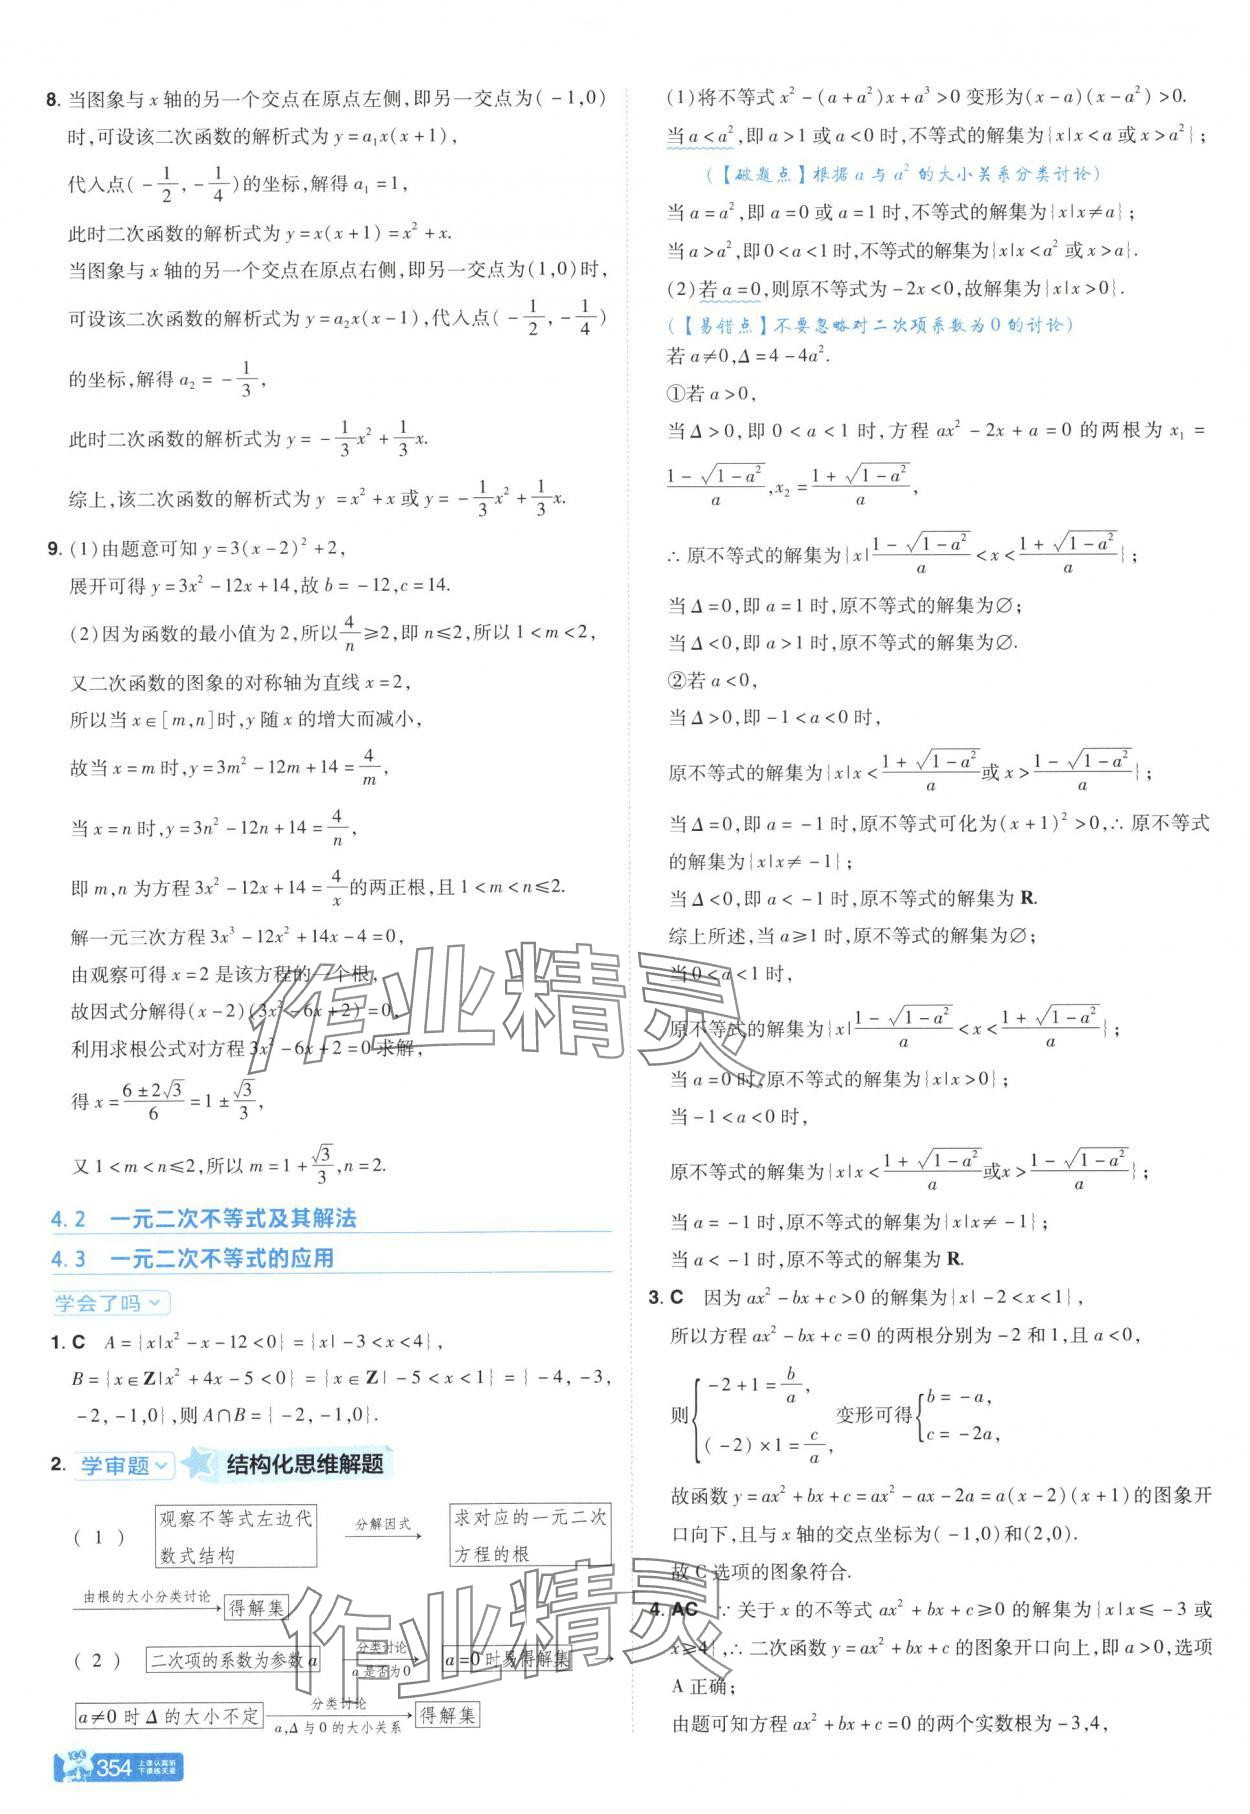 8. 当图象与 x 轴的另一个交点在原点左侧,即另一交点为(-1,0)
时,可设该二次函数的解析式为 y=a₁x(x+1),
代入点(-1/2,-1/4)的坐标,解得 a₁=1,
此时二次函数的解析式为 y=x(x+1)=x²+x.
当图象与 x 轴的另一个交点在原点右侧,即另一交点为(1,0)时,
可设该二次函数的解析式为 y=a₂x(x-1),代入点(-1/2,-1/4)
的坐标,解得 a₂=-1/3,
此时二次函数的解析式为 y=-1/3x²+1/3x.
综上,该二次函数的解析式为 y=x²+x 或 y=-1/3x²+1/3x.
9. (1)由题意可知 y=3(x-2)²+2,
展开可得 y=3x²-12x+14,故 b=-12,c=14.
(2)因为函数的最小值为 2,所以4/n≥2,即 n≤2,所以 1<m<2,
又二次函数的图象的对称轴为直线 x=2,
所以当 x∈[m,n]时,y 随 x 的增大而减小,
故当 x=m 时,y=3m²-12m+14=4/m,
当 x=n 时,y=3n²-12n+14=4/n,
即 m,n 为方程 3x²-12x+14=4/x的两正根,且 1<m<n≤2.
解一元三次方程 3x³-12x²+14x-4=0,
由观察可得 x=2 是该方程的一个根,
故因式分解得(x-2)(3x²-6x+2)=0,
利用求根公式对方程 3x²-6x+2=0 求解,
得 x=(6±2√3)/6=1±√3/3,
又 1<m<n≤2,所以 m=1+√3/3,n=2.
4.2 一元二次不等式及其解法
4.3 一元二次不等式的应用
学会了吗
1. C A={x|x²-x-12<0}={x|-3<x<4},
B={x∈Z|x²+4x-5<0}={x∈Z|-5<x<1}={-4,-3,
-2,-1,0},则 A∩B={-2,-1,0}.
2. 学审题 结构化思维解题
(1) 观察不等式左边代数式结构 分解因式 求对应的一元二次方程的根
由根的大小分类讨论 得解集
(2) 二次项的系数为参数 a 分类讨论 a 是否为0 a=0 时易得解集
a≠0 时 Δ 的大小不定 分类讨论 a,Δ 与 0 的大小关系 得解集
354 上课认真听 下课练天星
(1)将不等式 x²-(a+a²)x+a³>0 变形为(x-a)(x-a²)>0.
当 a<a²,即 a>1 或 a<0 时,不等式的解集为{x|x<a 或 x>a²};
(【破题点】根据 a 与 a² 的大小关系分类讨论)
当 a=a²,即 a=0 或 a=1 时,不等式的解集为{x|x≠a};
当 a>a²,即 0<a<1 时,不等式的解集为{x|x<a² 或 x>a}.
(2)若 a=0,则原不等式为-2x<0,故解集为{x|x>0}.
(【易错点】不要忽略对二次项系数为 0 的讨论)
若 a≠0,Δ=4-4a².
①若 a>0,
当 Δ>0,即 0<a<1 时,方程 ax²-2x+a=0 的两根为 x₁=
(1-√(1-a²))/a,x₂=(1+√(1-a²))/a,
∴ 原不等式的解集为{x|(1-√(1-a²))/a<x<(1+√(1-a²))/a};
当 Δ=0,即 a=1 时,原不等式的解集为∅;
当 Δ<0,即 a>1 时,原不等式的解集为∅.
②若 a<0,
当 Δ>0,即-1<a<0 时,
原不等式的解集为{x|x<(1+√(1-a²))/a或 x>(1-√(1-a²))/a};
当 Δ=0,即 a=-1 时,原不等式可化为(x+1)²>0,∴ 原不等式
的解集为{x|x≠-1};
当 Δ<0,即 a<-1 时,原不等式的解集为 R.
综上所述,当 a≥1 时,原不等式的解集为∅;
当 0<a<1 时,
原不等式的解集为{x|(1-√(1-a²))/a<x<(1+√(1-a²))/a};
当 a=0 时,原不等式的解集为{x|x>0};
当-1<a<0 时,
原不等式的解集为{x|x<(1+√(1-a²))/a或 x>(1-√(1-a²))/a};
当 a=-1 时,原不等式的解集为{x|x≠-1};
当 a<-1 时,原不等式的解集为 R.
3. C 因为 ax²-bx+c>0 的解集为{x|-2<x<1},
所以方程 ax²-bx+c=0 的两根分别为-2 和 1,且 a<0,
则{-2+1=b/a, (-2)×1=c/a 变形可得{b=-a, c=-2a,
故函数 y=ax²+bx+c=ax²-ax-2a=a(x-2)(x+1)的图象开
口向下,且与 x 轴的交点坐标为(-1,0)和(2,0).
故 C 选项的图象符合.
4. AC ∵ 关于 x 的不等式 ax²+bx+c≥0 的解集为{x|x≤-3 或
x≥4},∴ 二次函数 y=ax²+bx+c 的图象开口向上,即 a>0,选项
A 正确;
由题可知方程 ax²+bx+c=0 的两个实数根为-3,4,
作业精灵
作业精灵